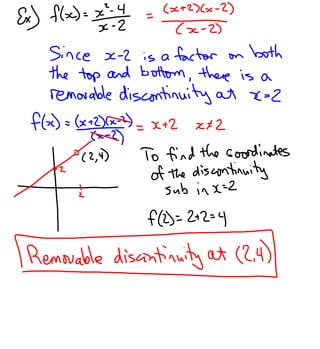 Ex) f(x) = x²-4 / x-2 = (x+2)(x-2) / (x-2)
Since x-2 is a factor on both
the top and bottom, there is a
removable discontinuity at x=2
f(x) = (x+2)(x-2) / (x-2) = x+2 x≠2
(2,4)
2
2
To find the coordinates
of the discontinuity
sub in x=2
f(2)= 2+2=4
Removable discontinuity at (2,4)